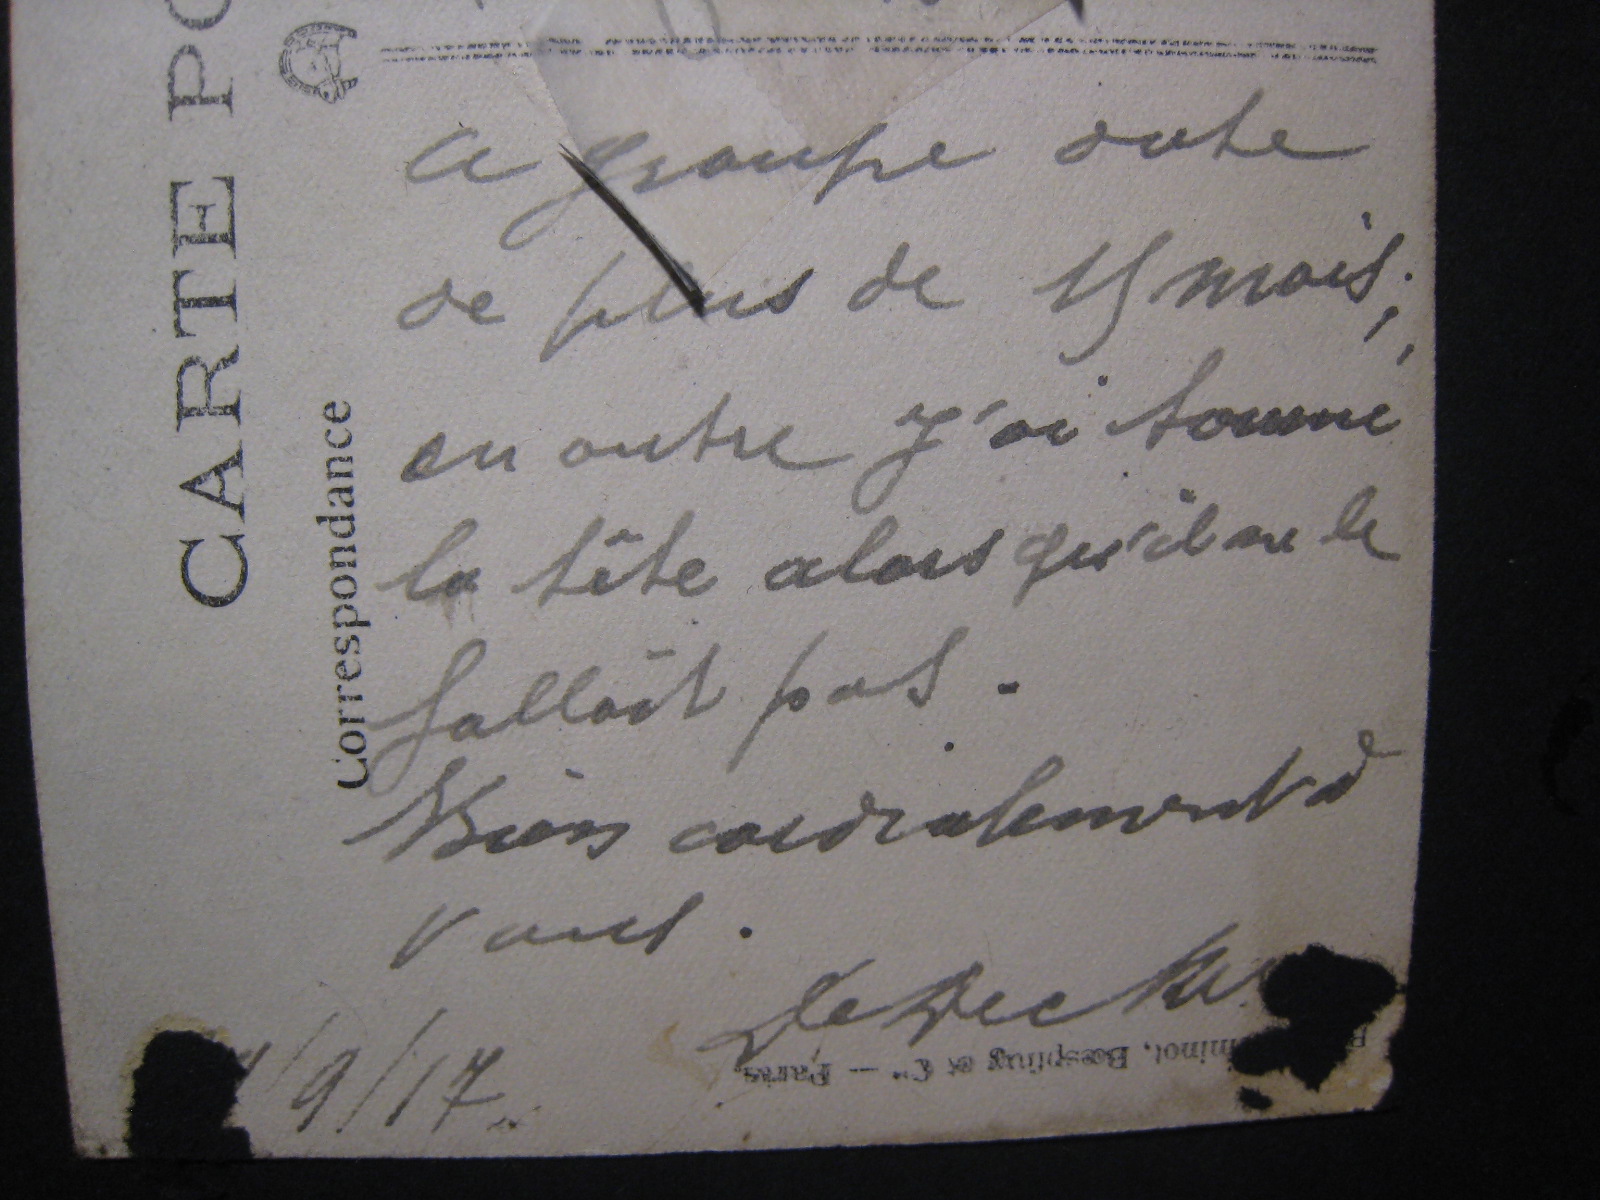 CARTE PO
Correspondance
ce groupe date
de plus de 15 mois,
en outre j'ai tourné
la tête alors qu'il ne le
fallait pas.
Bien cordialement à
vous.
De Decker
/9/17
minot, Bœspflug et Cie — Paris